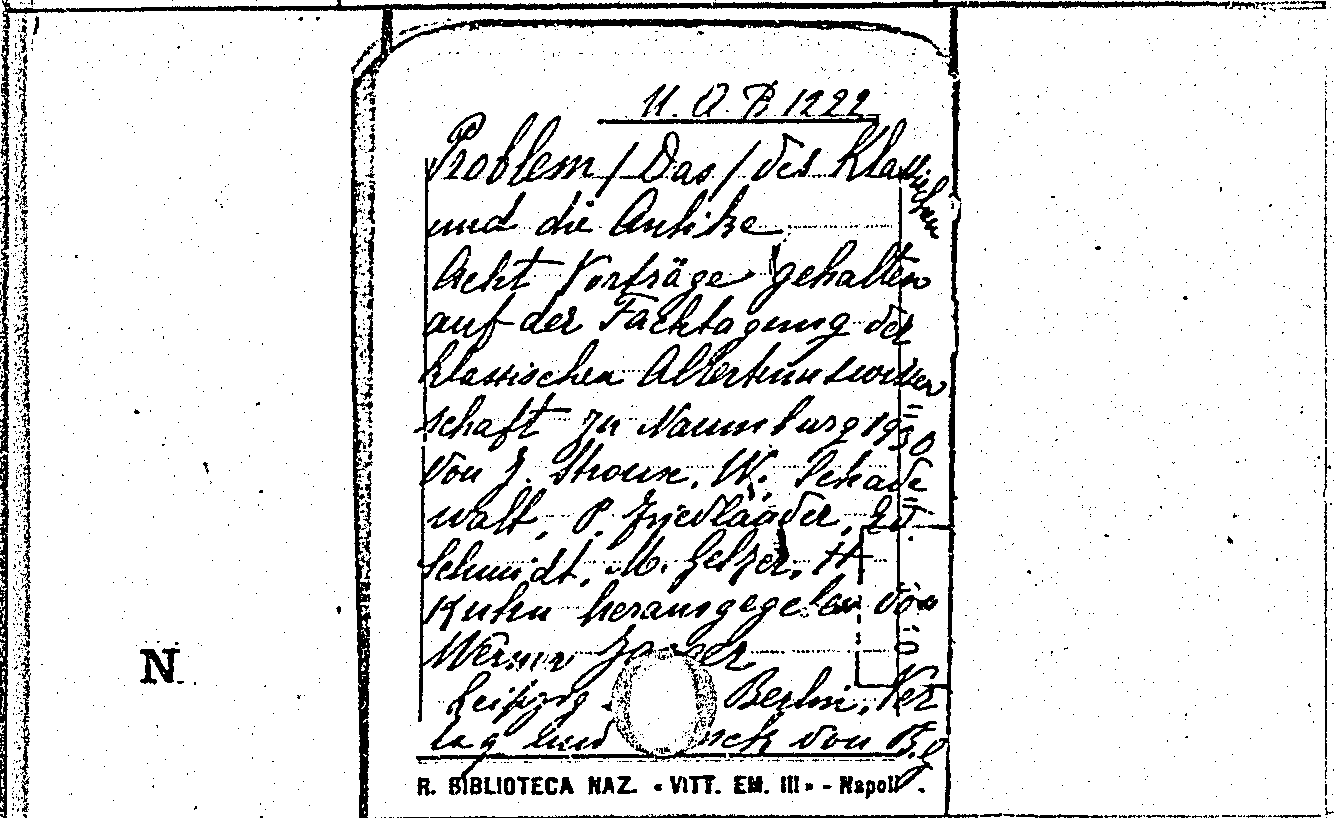 U. Q. B. 1222
Problem / Das / des Klassischen
und die Antike
Acht Vorträge gehalten
auf der Fachtagung der
klassischen Altertumswissen
schaft zu Naumburg 1930
von J. Stroux, W. Schade
walt, P. Friedländer, Ed.
Schmidt, M. Gelzer, H.
Kuhn herausgegeben von
Werner
Leipzig Berlin, Ver
lag und von B. G.
R. BIBLIOTECA NAZ. « VITT. EM. III » - Napoli
N